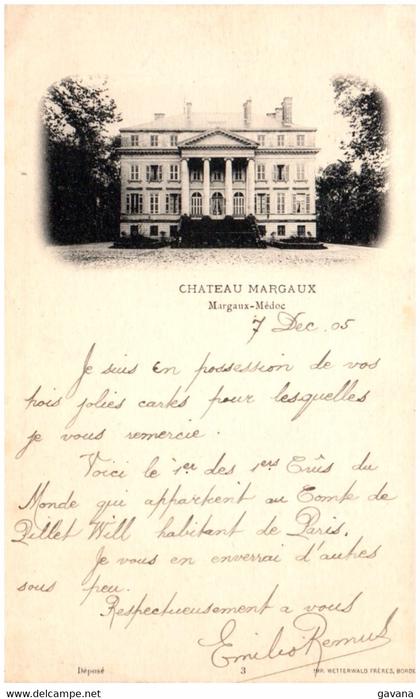 CHATEAU MARGAUX
Margaux-Médoc
7 Dec. 05
Je suis en possession de vos
trois jolies cartes pour lesquelles
je vous remercie.
Voici le 1er des 1ers Crûs du
Monde qui appartient au Comte de
Pillet Will habitant de Paris.
Je vous en enverrai d'autres
sous peu.
Respectueusement a vous
Emilio Remus
Déposé 3 IMP. WETTERWALD FRÈRES, BORDE
© gavana
www.delcampe.net